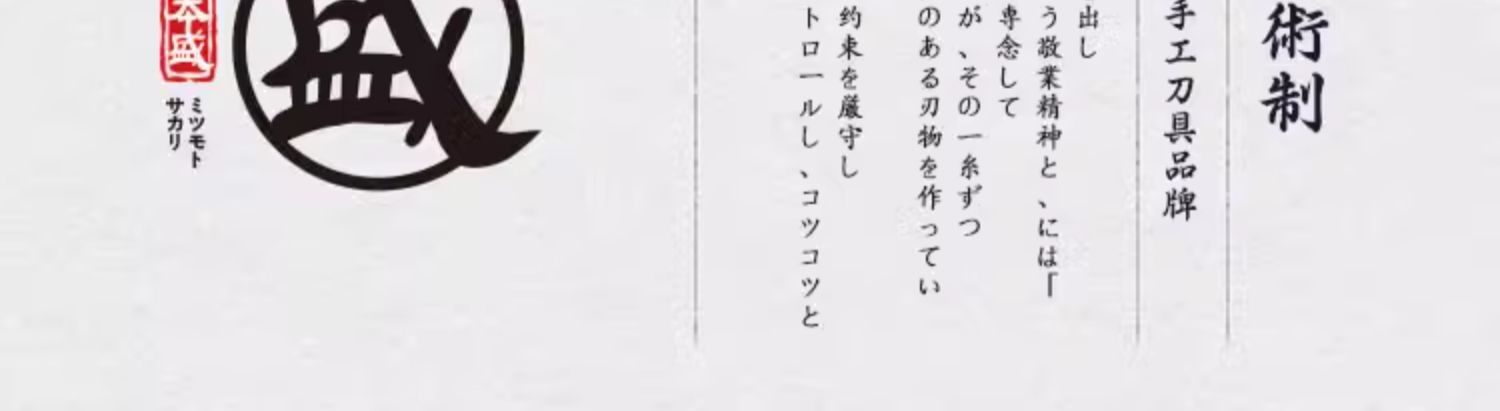 術制
手工刀具品牌
出し
う敬業精神と、には「
専念して
が、その一糸ずつ
のある刃物を作ってい
约束を厳守し
トロールし、コツコツと
盛
本盛
ミツモト
サカリ